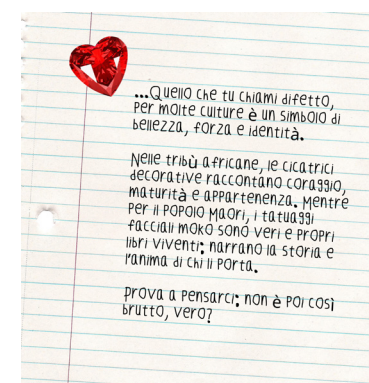 ...Quello che tu chiami difetto,
per molte culture è un simbolo di
bellezza, forza e identità.
Nelle tribù africane, le cicatrici
decorative raccontano coraggio,
maturità e appartenenza. Mentre
per il popolo Maori, i tatuaggi
facciali moko sono veri e propri
libri viventi: narrano la storia e
l'anima di chi li porta.
Prova a pensarci: non è poi così
brutto, vero?